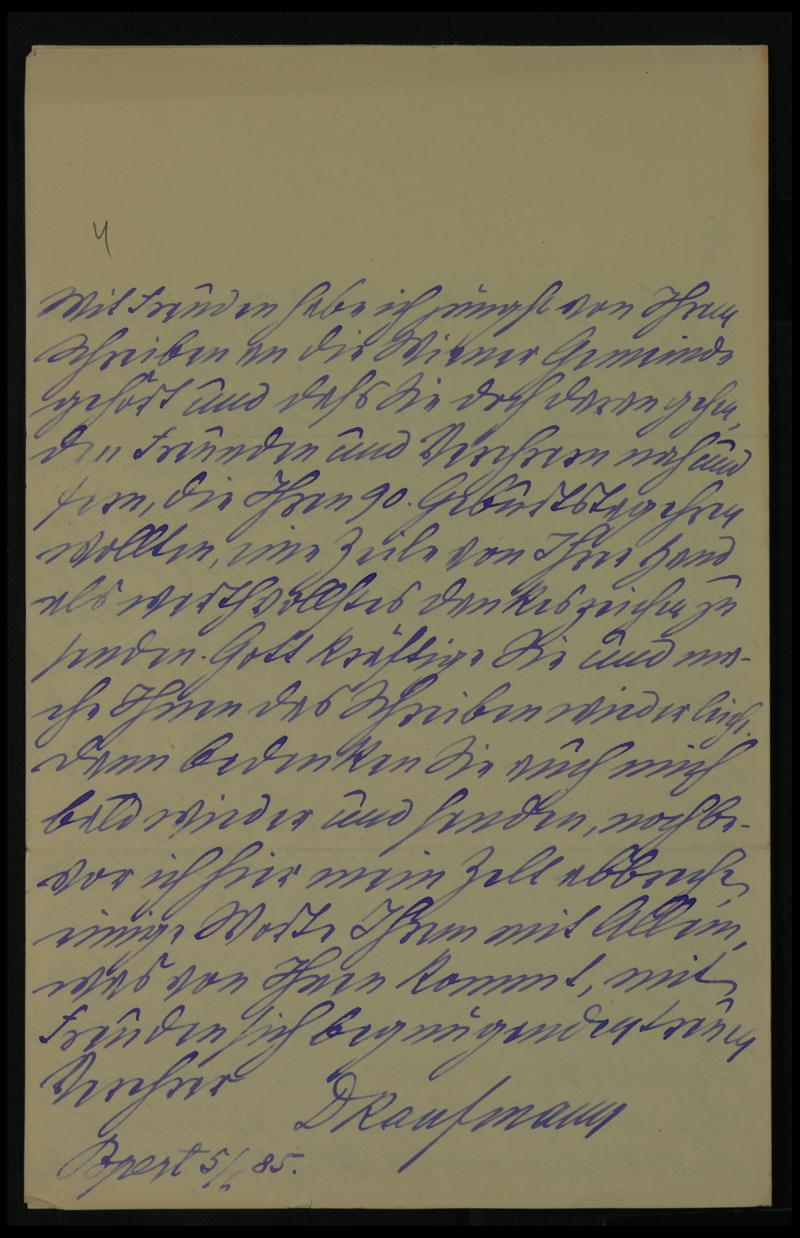 4
Mit Freuden habe ich jüngst von Ihrem
Schreiben an die Wiener Gemeinde
gehört und daß Sie doch daran gehen,
den Freunden und Verehrern nah und
fern, die Ihren 90. Geburtstag ehren
wollten, eine Zeile von Ihrer Hand
als werthvollstes Dankeszeichen zu
senden. Gott kräftige Sie und ma-
che Ihnen das Schreiben wieder leicht.
Dann bedenken Sie auch mich
bald wieder und senden, noch be-
vor ich hier mein Zelt abbreche,
einige Worte Ihrem mit Allem,
was von Ihnen kommt, mit
Freuden sich begnügenden treuen
Verehrer
DKaufmann
Bpest 5/ 85.